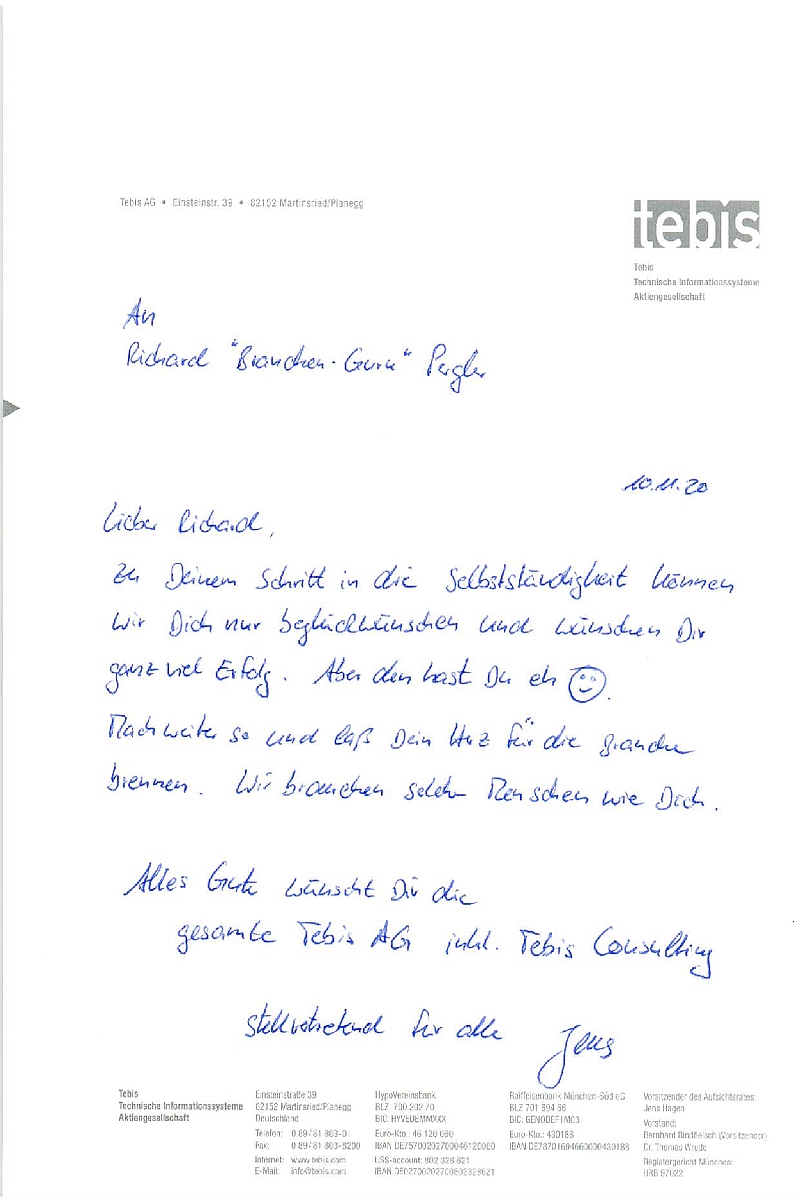 Tebis AG • Einsteinstr. 39 • 82152 Martinsried/Planegg
tebis
Tebis
Technische Informationssysteme
Aktiengesellschaft
An
Richard "Branchen-Guru" Pergler
10.11.20
Lieber Richard,
zu Deinem Schritt in die Selbstständigkeit können
wir Dich nur beglückwünschen und wünschen Dir
ganz viel Erfolg. Aber den hast Du eh ☺.
Mach weiter so und laß Dein Herz für die Branche
brennen. Wir brauchen solche Menschen wie Dich.
Alles Gute wünscht Dir die
gesamte Tebis AG inkl. Tebis Consulting
Stellvertretend für alle Jens
Tebis
Technische Informationssysteme
Aktiengesellschaft
Einsteinstraße 39
82152 Martinsried/Planegg
Deutschland
Telefon: 0 89/81 803-0
Fax: 0 89/81 803-8200
Internet: www.tebis.com
E-Mail: info@tebis.com
HypoVereinsbank
BLZ 700 202 70
BIC: HYVEDEMMXXX
Euro-Kto.: 46 120 060
IBAN DE75700202700046120060
US$-account: 802 328 621
IBAN DE02700202700802328621
Raiffeisenbank München-Süd eG
BLZ 701 694 66
BIC: GENODEF1M03
Euro-Kto.: 430188
IBAN DE78701694660000430188
Vorsitzender des Aufsichtsrates:
Jens Hagen
Vorstand:
Bernhard Rindfleisch (Vorsitzender)
Dr. Thomas Wrede
Registergericht München:
HRB 97022